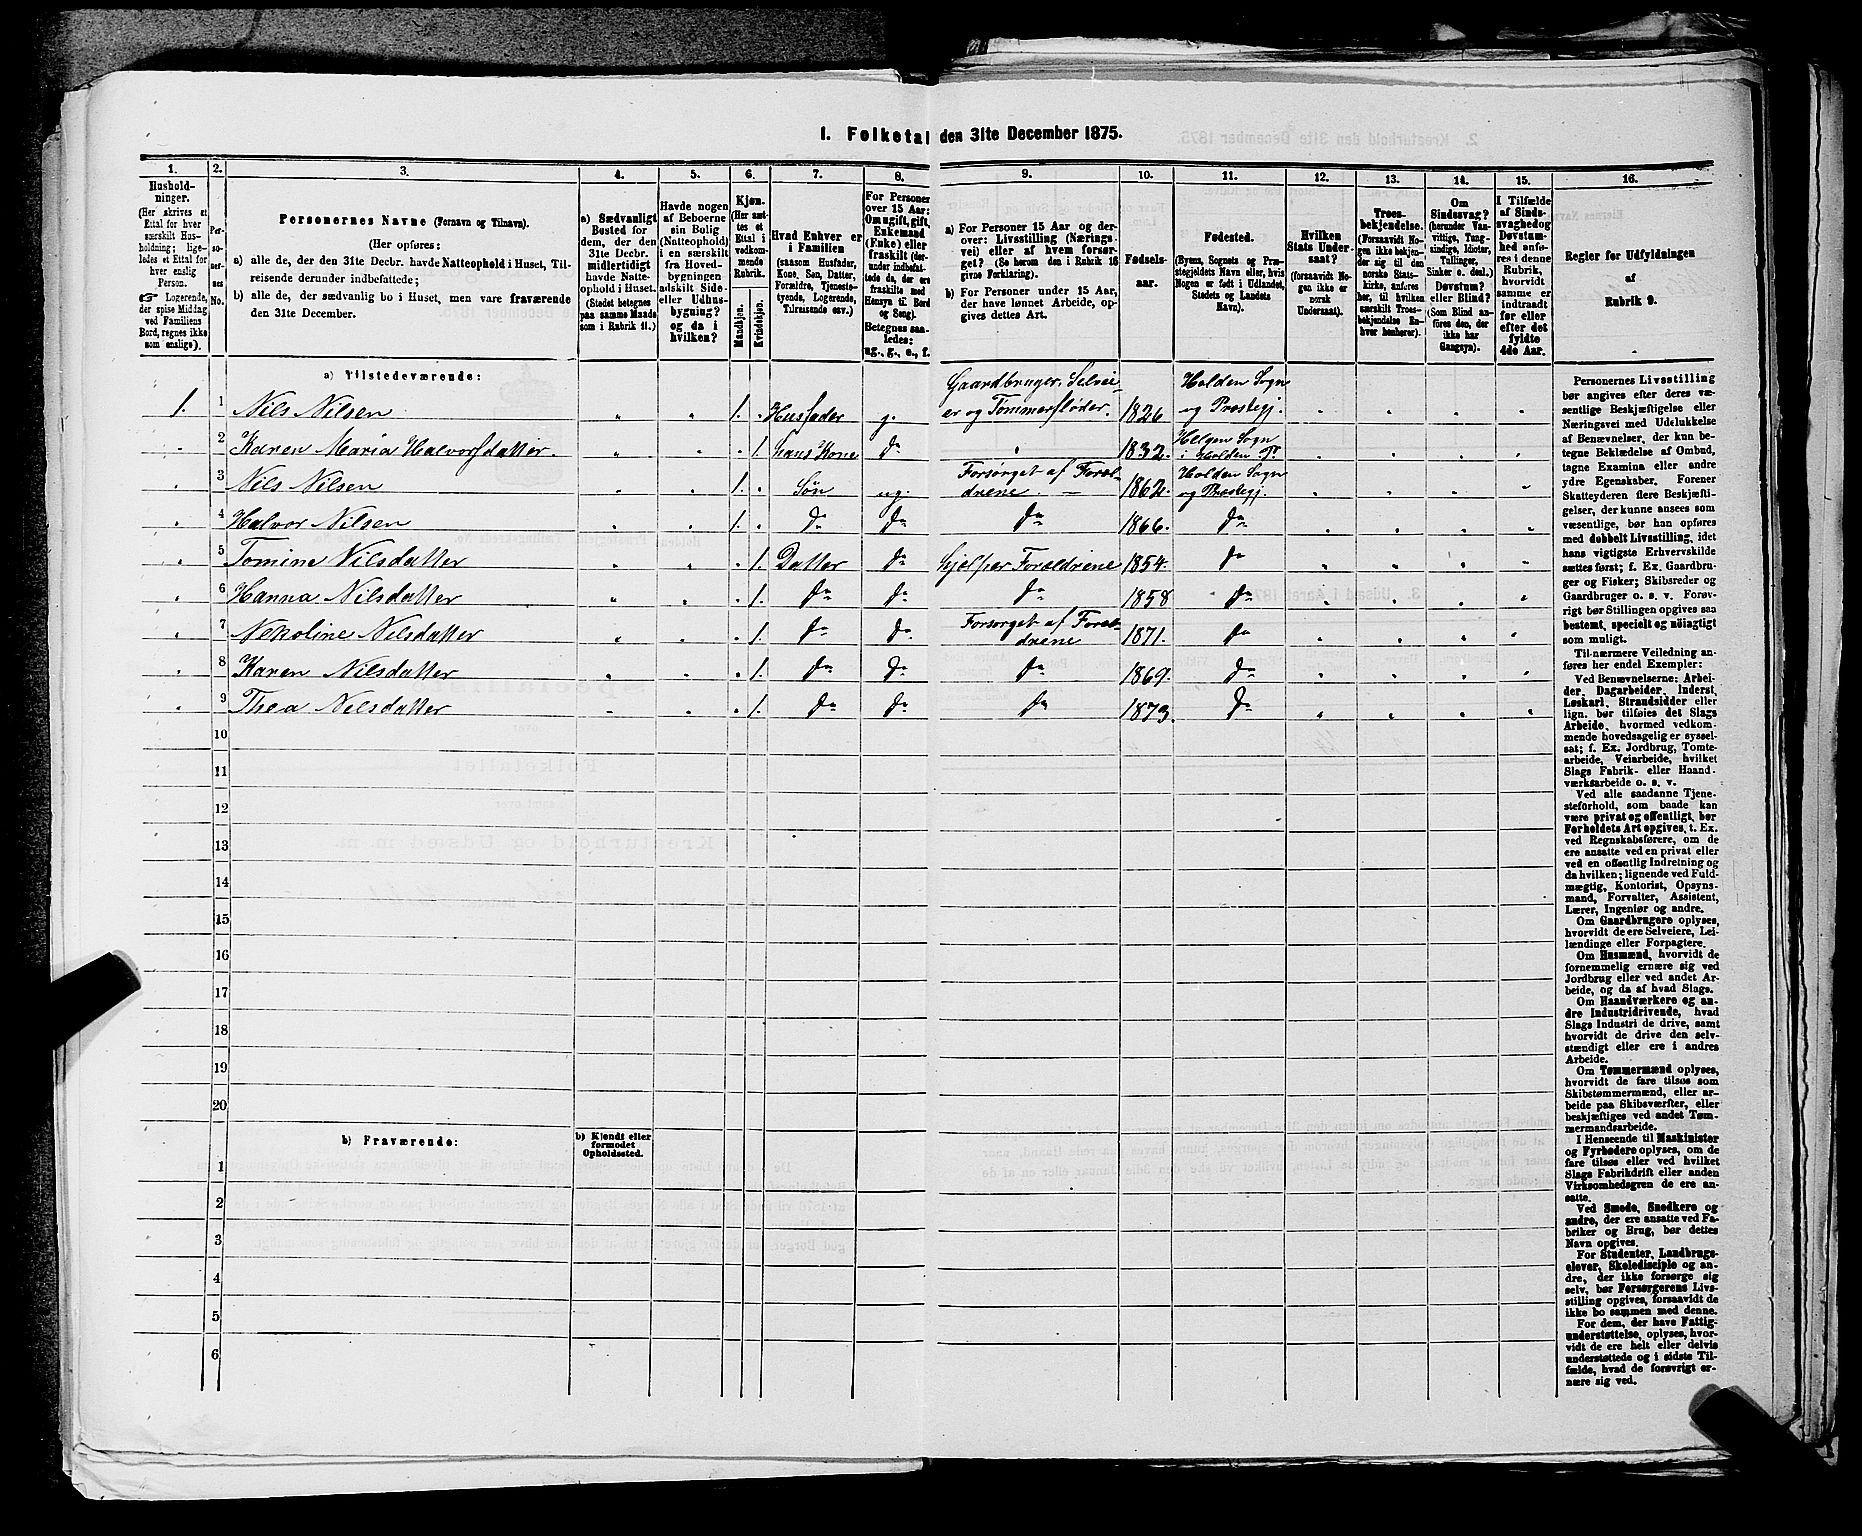 1. Folketal den 31te December 1875.
1.
2.
3.
4.
5.
6.
7.
8.
9.
10.
11.
12.
13.
14.
15.
16.
Hushold-
ninger.
(Her skrives et
Ettal for hver
særskilt Hus-
holdning; lige-
ledes et Ettal for
hver enslig
Person.
☞ Logerende,
der spise Middag
ved Familiens
Bord, regnes ikke
som enslige).
Per-
so-
ner-
nes
No.
Personernes Navne (Fornavn og Tilnavn).
(Her opføres:
a) alle de, der den 31te Decbr. havde Natteophold i Huset, Til-
reisende derunder indbefattede;
b) alle de, der sædvanlig bo i Huset, men vare fraværende
den 31te December.
a) Sædvanligt
Bosted for
dem, der den
31te Decbr.
midlertidigt
havde Natte-
ophold i Huset.
(Stedet betegnes
paa samme Maade
som i Rubrik 11.)
Havde nogen
af Beboerne
sin Bolig
(Natteophold)
i en særskilt
fra Hoved-
bygningen
adskilt Side-
eller Udhus-
bygning?
og da i
hvilken?
Kjøn.
(Her sæt-
tes et
Ettal i
vedkom-
mende
Rubrik.
Mandkjøn.
Kvindekjøn.
Hvad Enhver er
i Familien
(saasom Husfader,
Kone, Søn, Datter,
Forældre, Tjeneste-
tyende, Logerende,
Tilreisende osv.)
For Personer
over 15 Aar:
Om ugift, gift,
Enkemand
(Enke) eller
fraskilt (der-
under indbefat-
tede da, der
ere fraskilte med
Hensyn til Bord
og Seng).
Betegnes saa-
ledes:
ug., g., e., f.
a) For Personer 15 Aar og der-
over: Livsstilling (Nærings-
vei) eller af hvem forsør-
get? (Se herom den i Rubrik 16
givne Forklaring).
b) For Personer under 15 Aar,
der have lønnet Arbeide, op-
gives dettes Art.
Fødsels-
aar.
Fødested.
(Byens, Sognets og Præ-
stegjeldets Navn eller, hvis
Nogen er født i Udlandet,
Stedets og Landets
Navn).
Hvilken
Stats Under-
saat?
(forsaavidt No-
gen ikke er
norsk
Undersaat).
Troes-
bekjendelse.
(Forsaavidt No-
gen ikke bekjen-
der sig til den
norske Stats-
kirke, anføres
her, til hvilken
særskilt Troes-
bekjendelse En-
hver henhører).
Om
Sindssvag?
(herunder Van-
vittige, Tung-
sindige, Idioter,
Tullinger,
Sinker o. desl.)
Døvstum?
eller Blind?
(Som Blind an-
føres den, der
ikke har
Gangsyn).
I Tilfælde
af Sinds-
svaghed og
Døvstum-
hed anfø-
res i denne
Rubrik,
hvorvidt
samme er
indtraadt
før eller
efter det
fyldte
4de Aar.
Regler for Udfyldningen
af
Rubrik 9.
a) Tilstedeværende:
1. 1 Nils Nilsen „ „ 1. „ Husfader g. Gaardbruger, Selvei- er og Tømmerfløder. 1826 Holden Sogn og Prestegj.
2 Karen Maria Halvorsdatter. „ „ „ 1. hans Kone do „ 1832. Helgen Sogn i Holden Pr
3 Nils Nilsen „ „ 1. „ Søn ug. Forsørget af Foræl- drene. — 1862. Holden Sogn og Prestegj.
4 Halvor Nilsen „ „ 1. „ do do do 1866. do
5 Tomine Nilsdatter „ „ „ 1. Datter do hjælper Forældrene 1854. do
6 Hanna Nilsdatter „ „ „ 1. do do do 1858 do
7 Nikoline Nilsdatter „ „ „ 1. do do Forsørget af Foræl- drene 1871. do
8 Karen Nilsdatter „ „ „ 1. do do do 1869. do
9 Thea Nilsdatter „ „ „ 1. do do do 1873. do
10
11
12
13
14
15
16
17
18
19
20
b) Fraværende:
b) Kjendt eller
formodet
Opholdssted.
1
2
3
4
5
6
Personernes Livsstilling
bør angives efter deres væ-
sentlige Beskjæftigelse eller
Næringsvei med Udelukkelse
af Benævnelser, der kun be-
tegne Beklædelse af Ombud,
tagne Examina eller andre
ydre Egenskaber. Forener
Skatteyderen flere Beskjæfti-
gelser, der kunne ansees som
væsentlige, bør han opføres
med dobbelt Livsstilling, idet
hans vigtigste Erhvervskilde
sættes først; f. Ex. Gaardbru-
ger og Fisker; Skibsreder og
Gaardbruger o. s. v. Forøv-
rigt bør Stillingen opgives saa
bestemt, specielt og nöiagtigt
som muligt.
Til nærmere Veiledning an-
føres her endel Exempler:
Ved Benævnelserne: Arbei-
der, Dagarbeider, Inderst,
Løskarl, Strandsidder eller
lign. bør tilføies det Slags
Arbeide, hvormed vedkom-
mende hovedsagelig er syssel-
sat; f. Ex. Jordbrug, Tomte-
arbeide, Veiarbeide, hvilket
Slags Fabrik- eller Haand-
værksarbeide o. s. v.
Ved alle saadanne Tjene-
steforhold, som baade kan
være privat og offentligt, bør
Forholdets Art opgives, t. Ex.
ved Regnskabsførere, om de
ere ansatte ved en privat eller
ved en offentlig Indretning og
da hvilken; lignende ved Fuld-
mægtig, Kontorist, Opsyns-
mand, Forvalter, Assistent,
Lærer, Ingeniør og andre.
Om Gaardbrugere oplyses,
hvorvidt de ere Selveiere, Lei-
lændinge eller Forpagtere.
Om Husmænd, hvorvidt de
fornemmelig ernære sig ved
Jordbrug eller ved andet Ar-
beide, og da af hvad Slags.
Om Haandværkere og an-
dre Industridrivende, hvad
Slags Industri de drive, samt
hvorvidt de drive den selv-
stændigt eller ere i andres
Arbeide.
Om Tømmermænd oplyses,
hvorvidt de fare tilsøs som
Skibstømmermænd, eller ar-
beide paa Skibsværfter, eller
beskjæftiges ved andet Tøm-
mermandsarbeide.
I Henseende til Maskinister
og Fyrbødere oplyses, om de
fare tilsøs eller ved hvilket
Slags Fabrikdrift eller anden
Virksomhedsgren de ere an-
satte.
Ved Smede, Snedkere og
andre, der ere ansatte ved Fa-
briker og Brug, bør dettes
Navn opgives.
For Studenter, Landbrugs-
elever, Skoledisciple og an-
dre, der ikke forsørge sig
selv, bør Forsørgerens Livs-
stilling opgives, forsaavidt de
ikke bo sammen med denne.
For dem, der have Fattig-
understøttelse, oplyses, hvor-
vidt de ere helt eller delvis
understøttede og i sidste Til-
fælde, hvad de forøvrigt er-
nære sig ved.